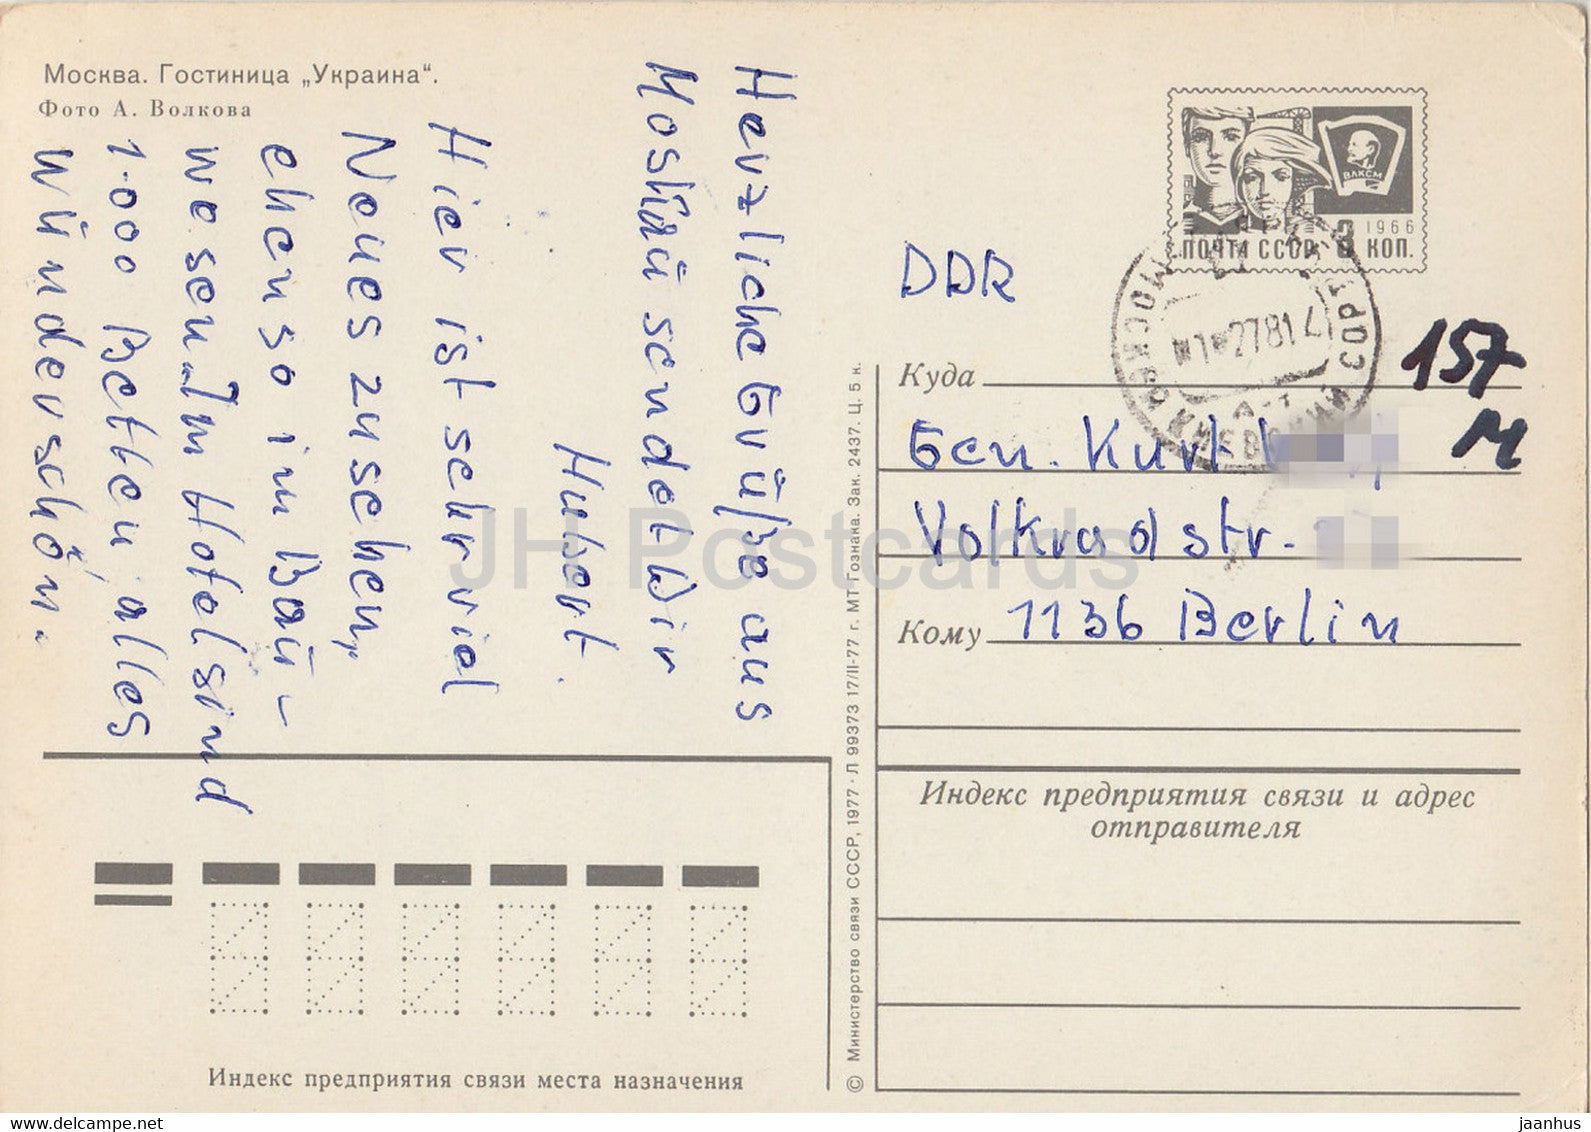 Москва. Гостиница „Украина“.
Фото А. Волкова
Herzliche Grüße aus
Moskau sendet Wir
Hubert.
Hier ist sehr viel
Neues zu sehen,
ebenso im Bau-
wesen. Im Hotel sind
1000 Betten, alles
wunderschön.
ВЛКСМ
1966
ПОЧТА СССР 3 КОП.
МОСКВА
27 81
DDR
157
M
Куда
Gen. Kurt
Volkradstr.
Кому 1136 Berlin
Индекс предприятия связи и адрес
отправителя
© Министерство связи СССР, 1977 · Л 99373 17/II-77 г. МТ Гознака. Зак. 2437. Ц. 5 к.
Индекс предприятия связи места назначения
JH Postcards
www.delcampe.net
jaanhus